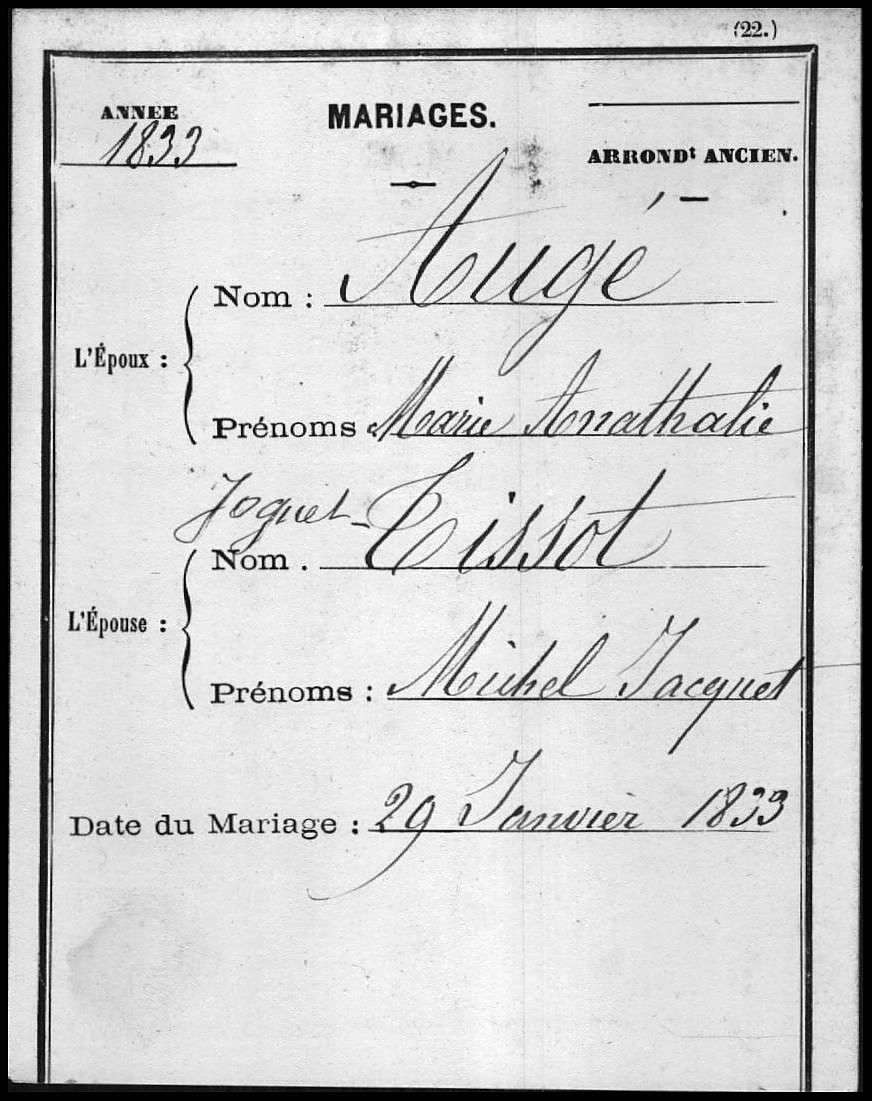 (22.)
ANNEE
1833
MARIAGES.
ARRONDt ANCIEN.
L'Époux :
Nom : Augé
Prénoms Marie Anathalie
L'Épouse :
Nom . Joguet-Tissot
Prénoms : Michel Jacquet
Date du Mariage : 29 Janvier 1833